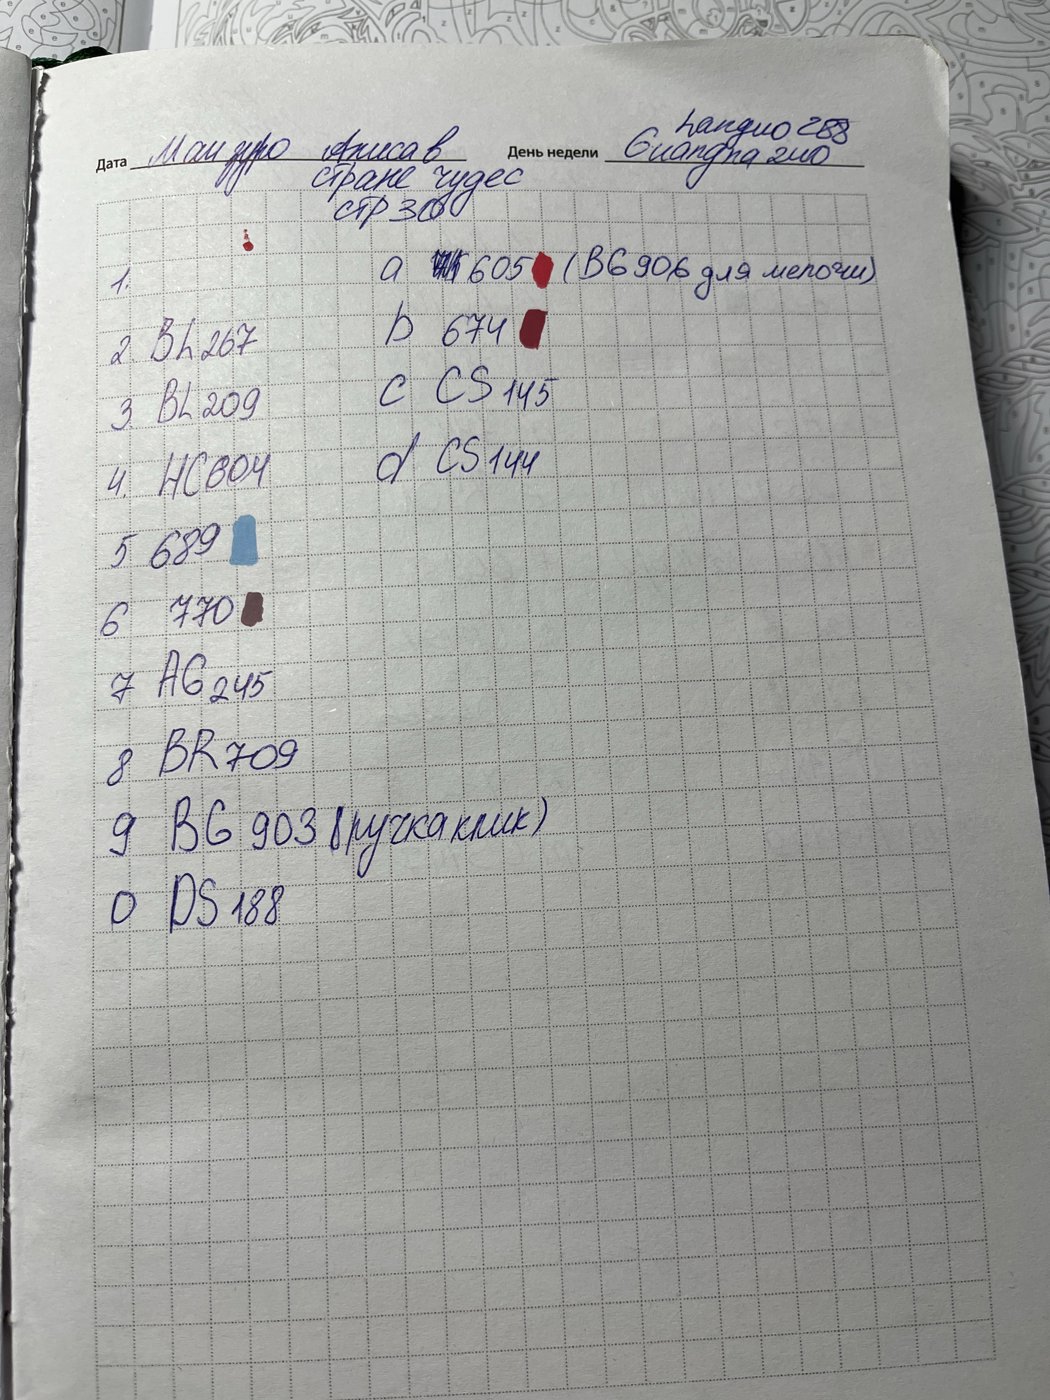 Ландио 288
Дата Мандуро Алиса в День недели Guangna 240
стране чудес
стр 30
1.
a 605 (BG 906 для мелочи)
2 BL 267
b 674
3 BL 209
c CS 145
4. HC604
d CS 144
5 689
6 770
7 AG 245
8 BR 709
9 BG 903 (ручка клик)
0 DS 188